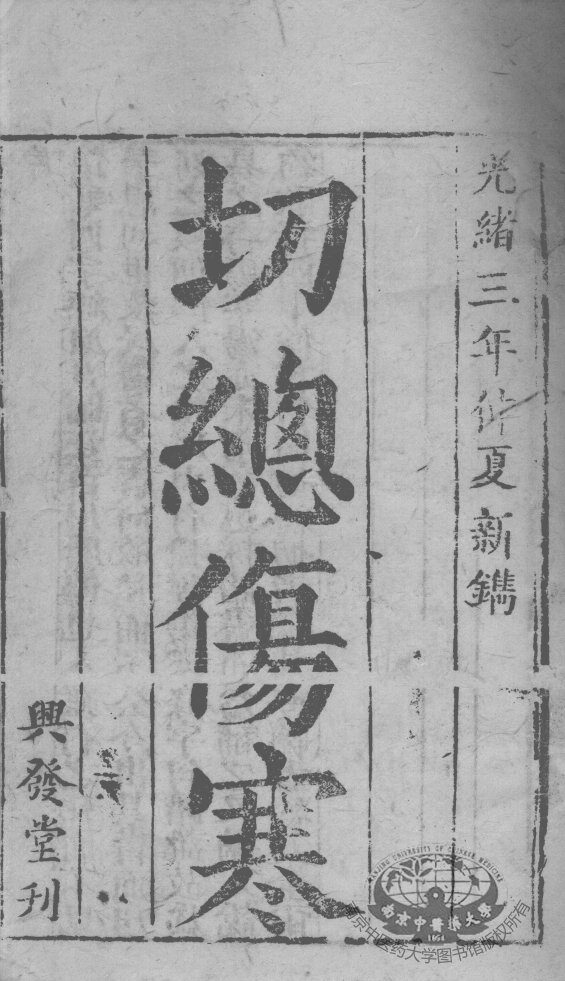 光緒三年仲夏新鐫
切總傷寒
興發堂刊
NANJING UNIVERSITY OF CHINESE MEDICINE
南京中醫藥大學
1954
南京中医药大学图书馆版权所有